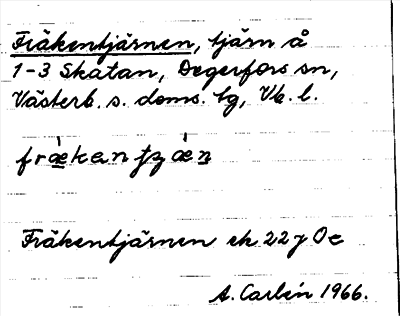 Fräkentjärnen, tjärn å
1-3 Skatan, Degerfors sn,
Västerb. s. doms. tg, Vb. l.
frækantzæn
Fräkentjärnen ek 22 j Oe
A. Carlén 1966.